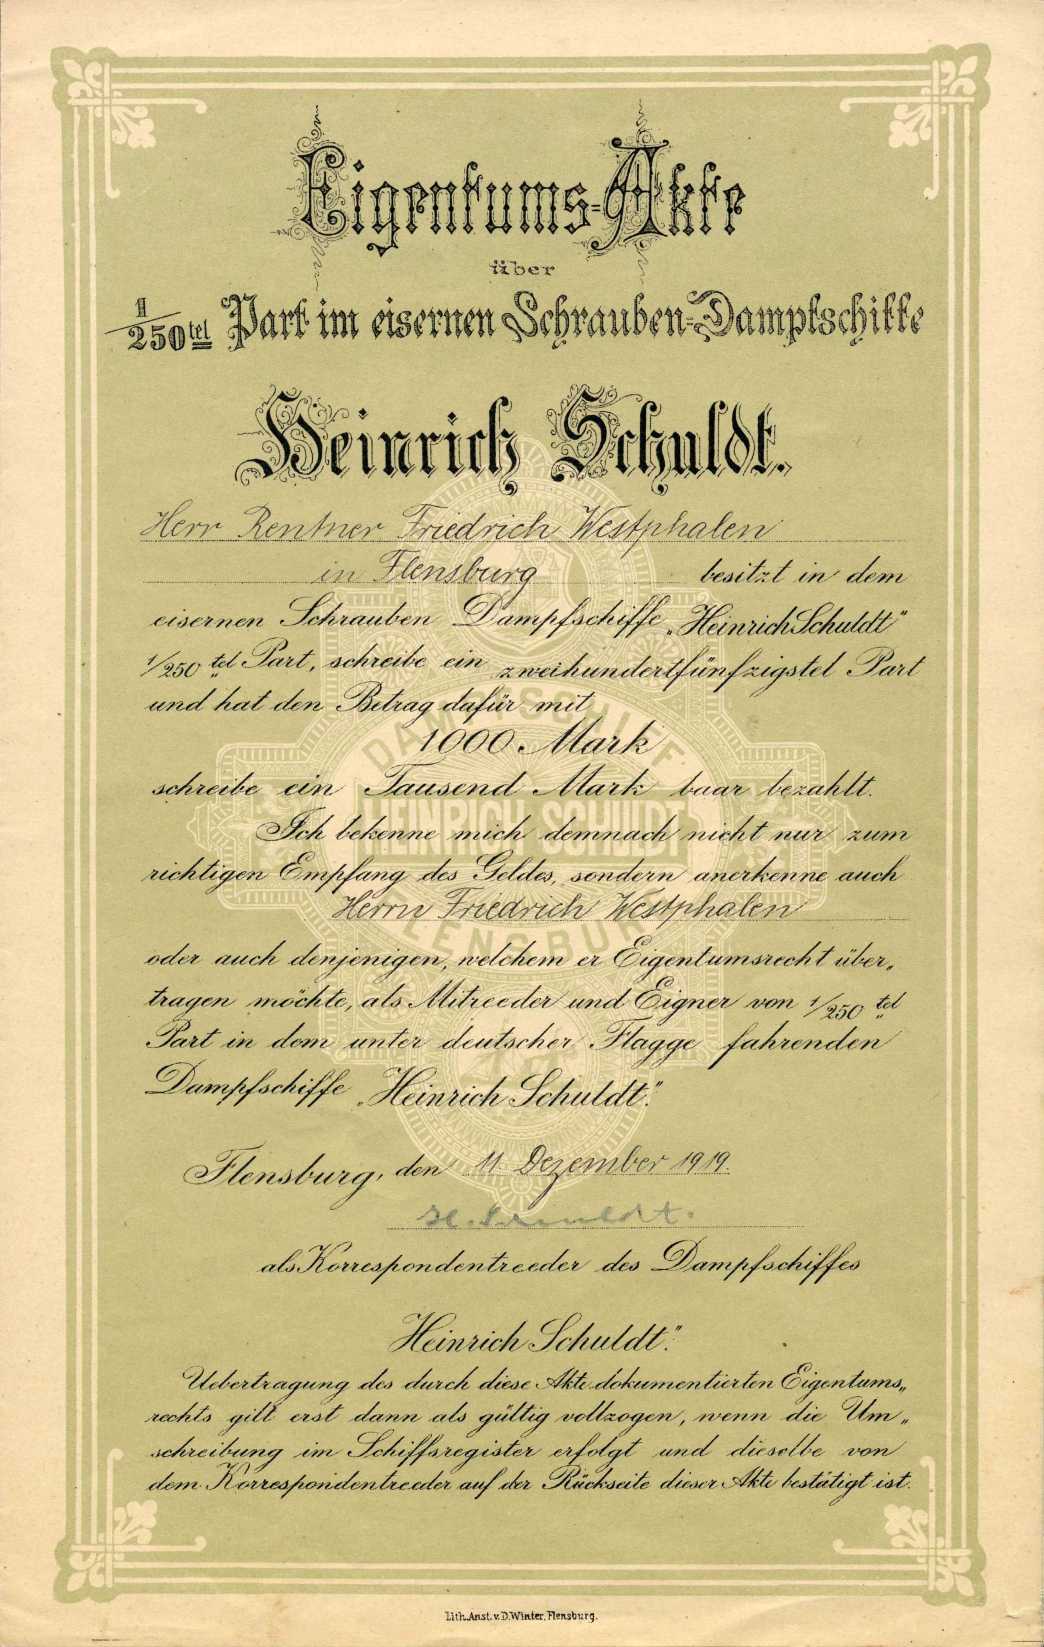 Eigentums-Akte
über
1/250tel Part im eisernen Schrauben-Dampfschiffe
Heinrich Schuldt.
Herr Rentner Friedrich Westphalen
in Flensburg besitzt in dem
eisernen Schrauben Dampfschiffe „Heinrich Schuldt"
1/250 tel Part, schreibe ein zweihundertfünfzigstel Part
und hat den Betrag dafür mit
1000 Mark
schreibe ein Tausend Mark baar bezahlt.
Ich bekenne mich demnach nicht nur zum
richtigen Empfang des Geldes, sondern anerkenne auch
Herrn Friedrich Westphalen
oder auch denjenigen, welchem er Eigentumsrecht über„
tragen möchte, als Mitreeder und Eigner von 1/250 tel
Part in dem unter deutscher Flagge fahrenden
Dampfschiffe „Heinrich Schuldt".
Flensburg, den 11 Dezember 1919.
H. Schuldt.
als Korrespondentreeder des Dampfschiffes
Heinrich Schuldt".
Uebertragung des durch diese Akte dokumentierten Eigentums„
rechts gilt erst dann als gültig vollzogen, wenn die Um„
schreibung im Schiffsregister erfolgt und dieselbe von
dem Korrespondentreeder auf der Rückseite dieser Akte bestätigt ist.
DAMPFSCHIFF
HEINRICH SCHULDT
FLENSBURG
Lith. Anst. v. D. Winter, Flensburg.